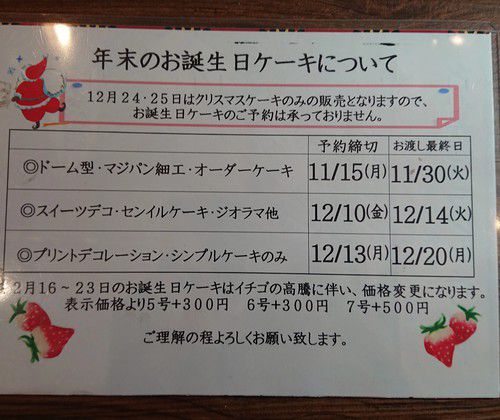 年末のお誕生日ケーキについて
12月24・25日はクリスマスケーキのみの販売となりますので、
お誕生日ケーキのご予約は承っておりません。
予約締切 お渡し最終日
◎ドーム型・マジパン細工・オーダーケーキ 11/15(月) 11/30(火)
◎スイーツデコ・センイルケーキ・ジオラマ他 12/10(金) 12/14(火)
◎プリントデコレーション・シンプルケーキのみ 12/13(月) 12/20(月)
2月16～23日のお誕生日ケーキはイチゴの高騰に伴い、価格変更になります。
表示価格より5号+300円 6号+300円 7号+500円
ご理解の程よろしくお願い致します。